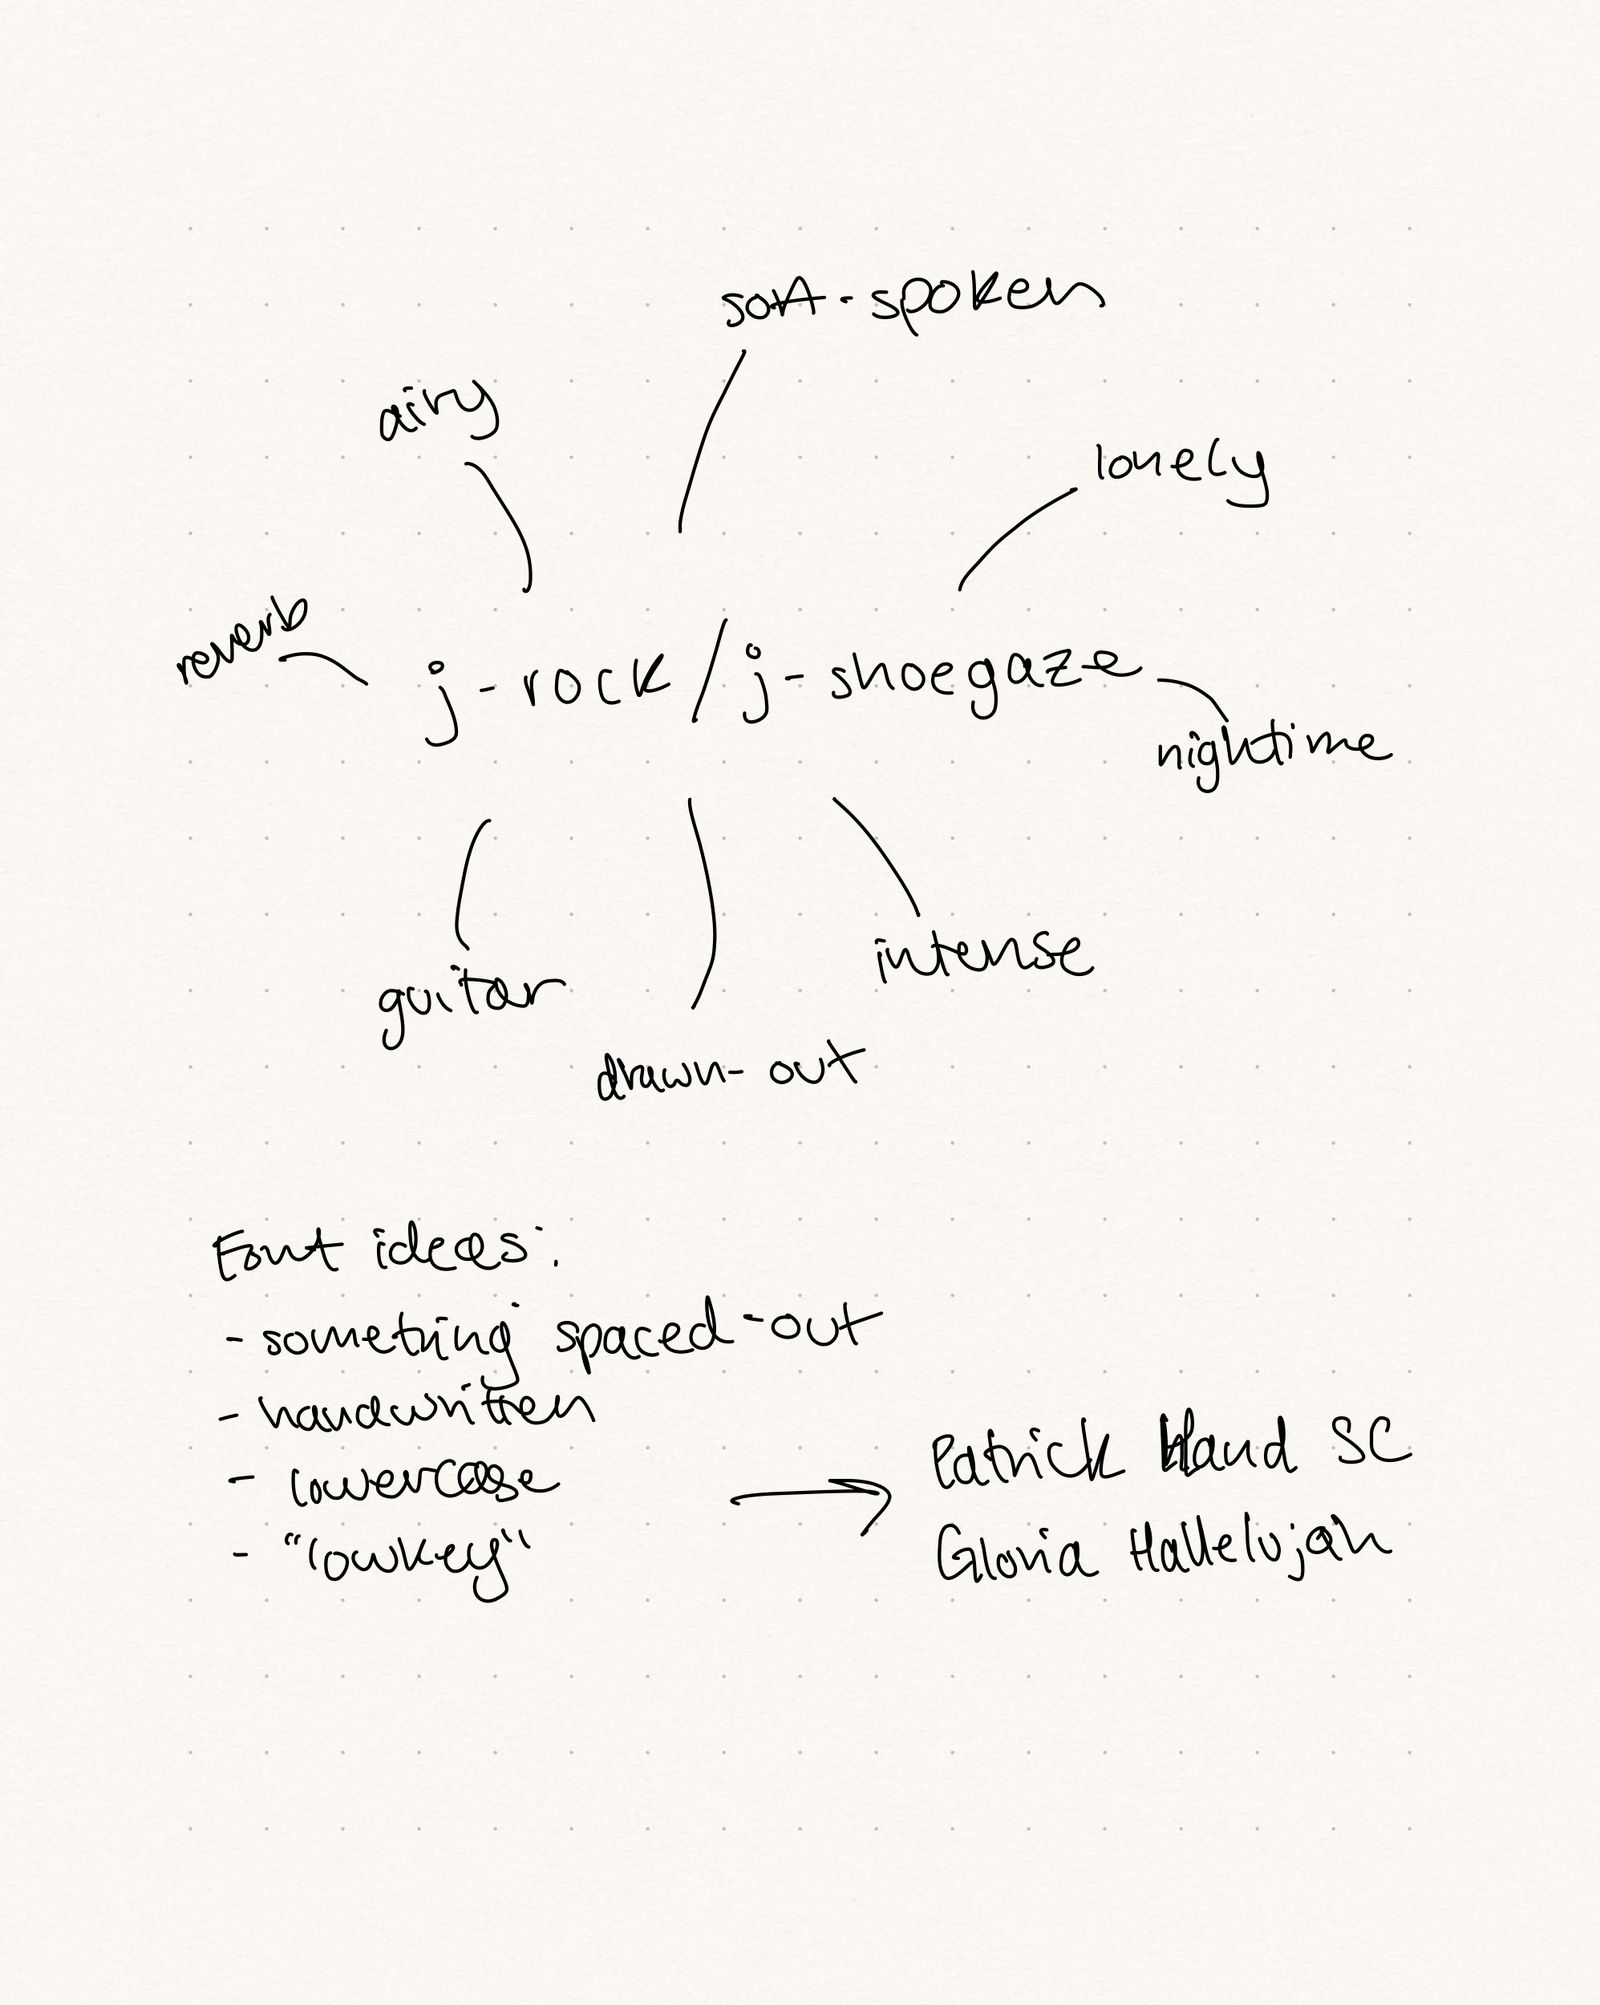 soft-spoken
airy
lonely
reverb
j-rock/j-shoegaze
nightime
guitar
intense
drawn-out
Font ideas:
- something spaced-out
- handwritten
- lowercase
- "lowkey"
Patrick Hand SC
Gloria Hallelujah